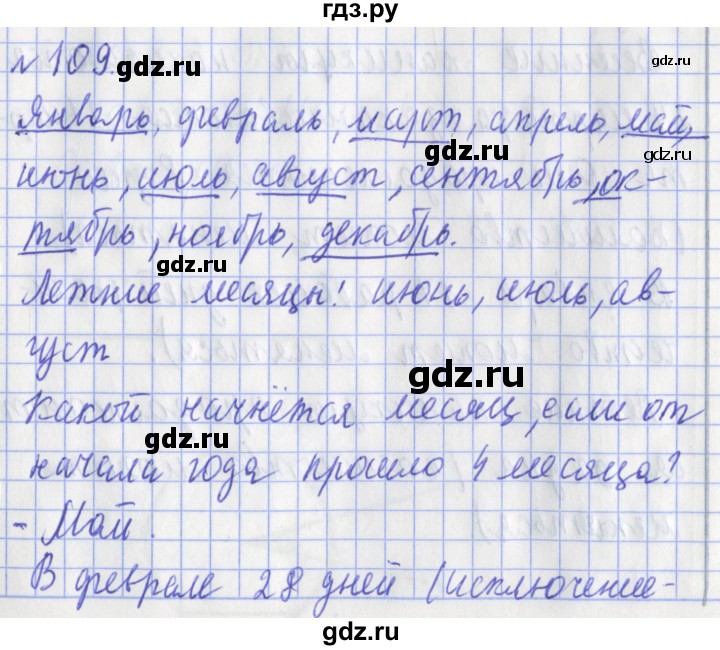 гдз.ру
№109.
gdz.ru
gdz.ru
Январь, февраль, март, апрель, май,
gdz.ru
gdz.ru
июнь, июль, август, сентябрь, ок-
тябрь, ноябрь, декабрь.
gdz.ru
Летние месяцы: июнь, июль, ав-
густ
gdz.ru
Какой начнётся месяц, если от
gdz.ru
начала года прошло 4 месяца?
- Май.
В феврале 28 дней (исключение-
gdz.ru
gdz.ru